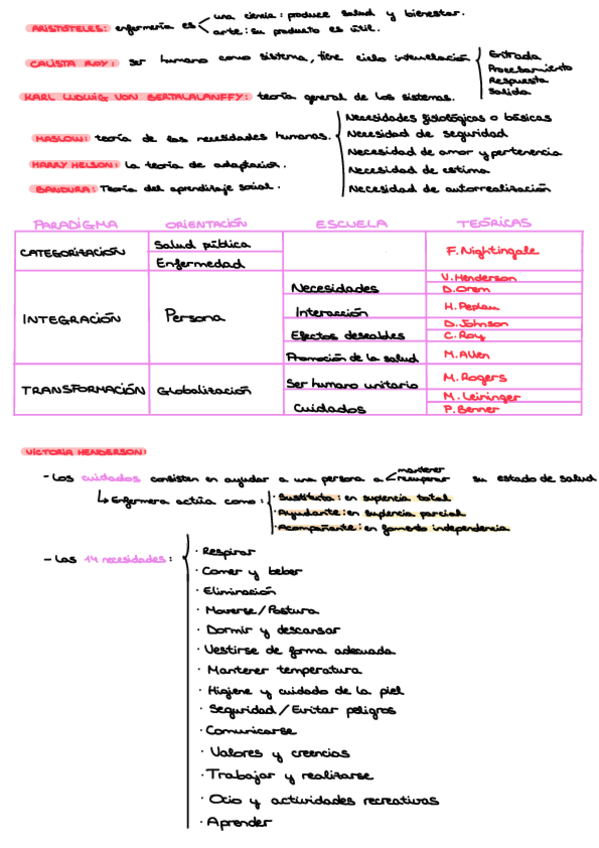 ARISTÓTELES: enfermería es una ciencia: produce salud y bienestar.
arte: su producto es útil.
CALISTA ROY: ser humano como sistema, tiene ciclo interrelación Entrada
Procesamiento
Respuesta
Salida
KARL LUDWIG VON BERTALALANFFY: teoría general de los sistemas.
MASLOW: teoría de las necesidades humanas.
Necesidades fisiológicas o básicas
Necesidad de seguridad
Necesidad de amor y pertenencia
Necesidad de estima
Necesidad de autorrealización
HARRY HELSON: la teoría de adaptación.
BANDURA: Teoría del aprendizaje social.
PARADIGMA ORIENTACIÓN ESCUELA TEÓRICAS
CATEGORIZACIÓN Salud pública F. Nightingale
Enfermedad
INTEGRACIÓN Persona Necesidades V. Henderson
D. Orem
Interacción H. Peplau
Efectos deseables D. Johnson
C. Roy
Promoción de la salud M. Allen
TRANSFORMACIÓN Globalización Ser humano unitario M. Rogers
Cuidados M. Leininger
P. Benner
VICTORIA HENDERSON:
- Los cuidados consisten en ayudar a una persona a mantener su estado de salud
recuperar
↳ Enfermera actúa como: · Sustituta: en suplencia total
· Ayudante: en suplencia parcial
· Acompañante: en fomento independencia
- Las 14 necesidades:
· Respirar
· Comer y beber
· Eliminación
· Moverse/Postura
· Dormir y descansar
· Vestirse de forma adecuada
· Mantener temperatura
· Higiene y cuidado de la piel
· Seguridad/Evitar peligros
· Comunicarse
· Valores y creencias
· Trabajar y realizarse
· Ocio y actividades recreativas
· Aprender